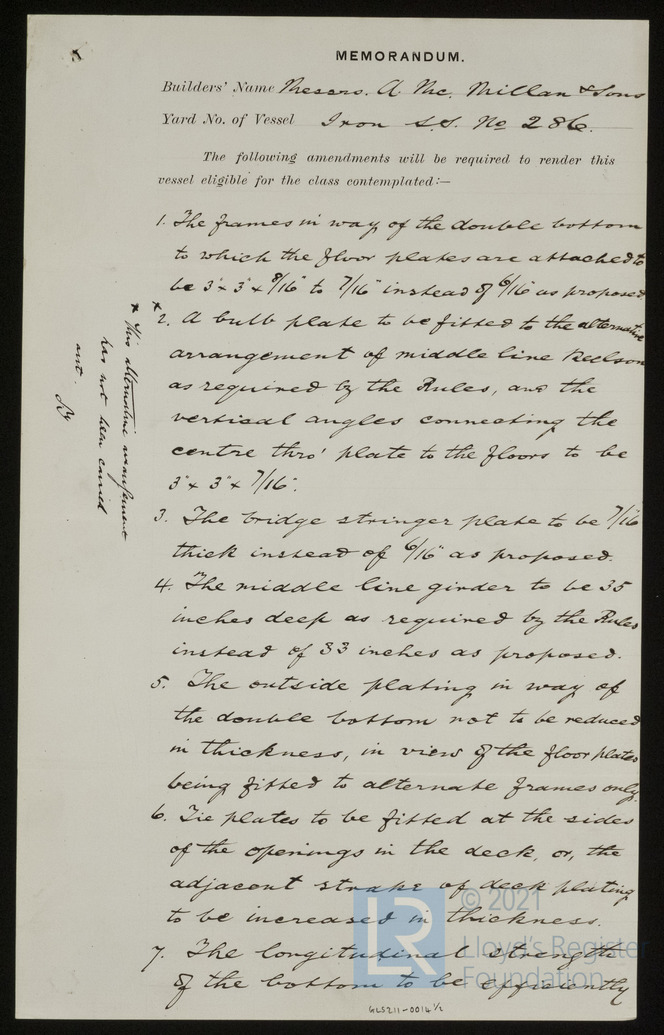 MEMORANDUM.
Builders' Name Messrs. A. Mc. Millan & Sons
Yard No. of Vessel Iron S.S. No 286.
The following amendments will be required to render this
vessel eligible for the class contemplated:—
1. The frames in way of the double bottom
to which the floor plates are attached to
be 3" x 3" x 8/16" to 7/16" instead of 6/16" as proposed
x 2. A bulb plate to be fitted to the alternative
arrangement of middle line Keelson
as required by the Rules, and the
vertical angles connecting the
centre thro' plate to the floors to be
3" x 3" x 7/16".
3. The bridge stringer plate to be 7/16"
thick instead of 6/16" as proposed.
4. The middle line girder to be 35
inches deep as required by the Rules
instead of 33 inches as proposed.
5. The outside plating in way of
the double bottom not to be reduced
in thickness, in view of the floor plates
being fitted to alternate frames only.
6. Tie plates to be fitted at the sides
of the openings in the deck, or, the
adjacent strake of deck plating
to be increased in thickness.
7. The longitudinal strength
of the bottom to be efficiently
x This alternative arrangement
has not been carried
out.
© 2021
Lloyd's Register
Foundation
LR
GLS211-0014 1/2